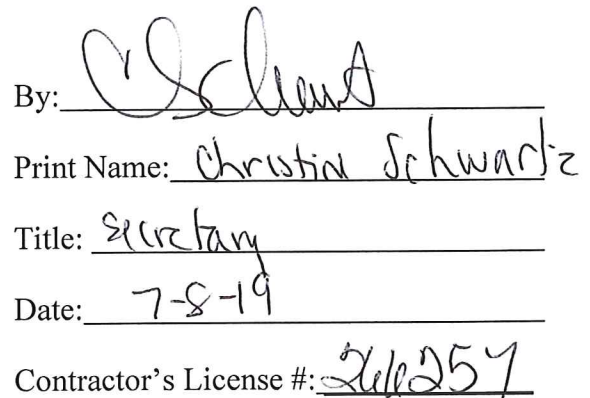 By:
Print Name: Christin Schwartz
Title: Secretary
Date: 7-8-19
Contractor's License #: